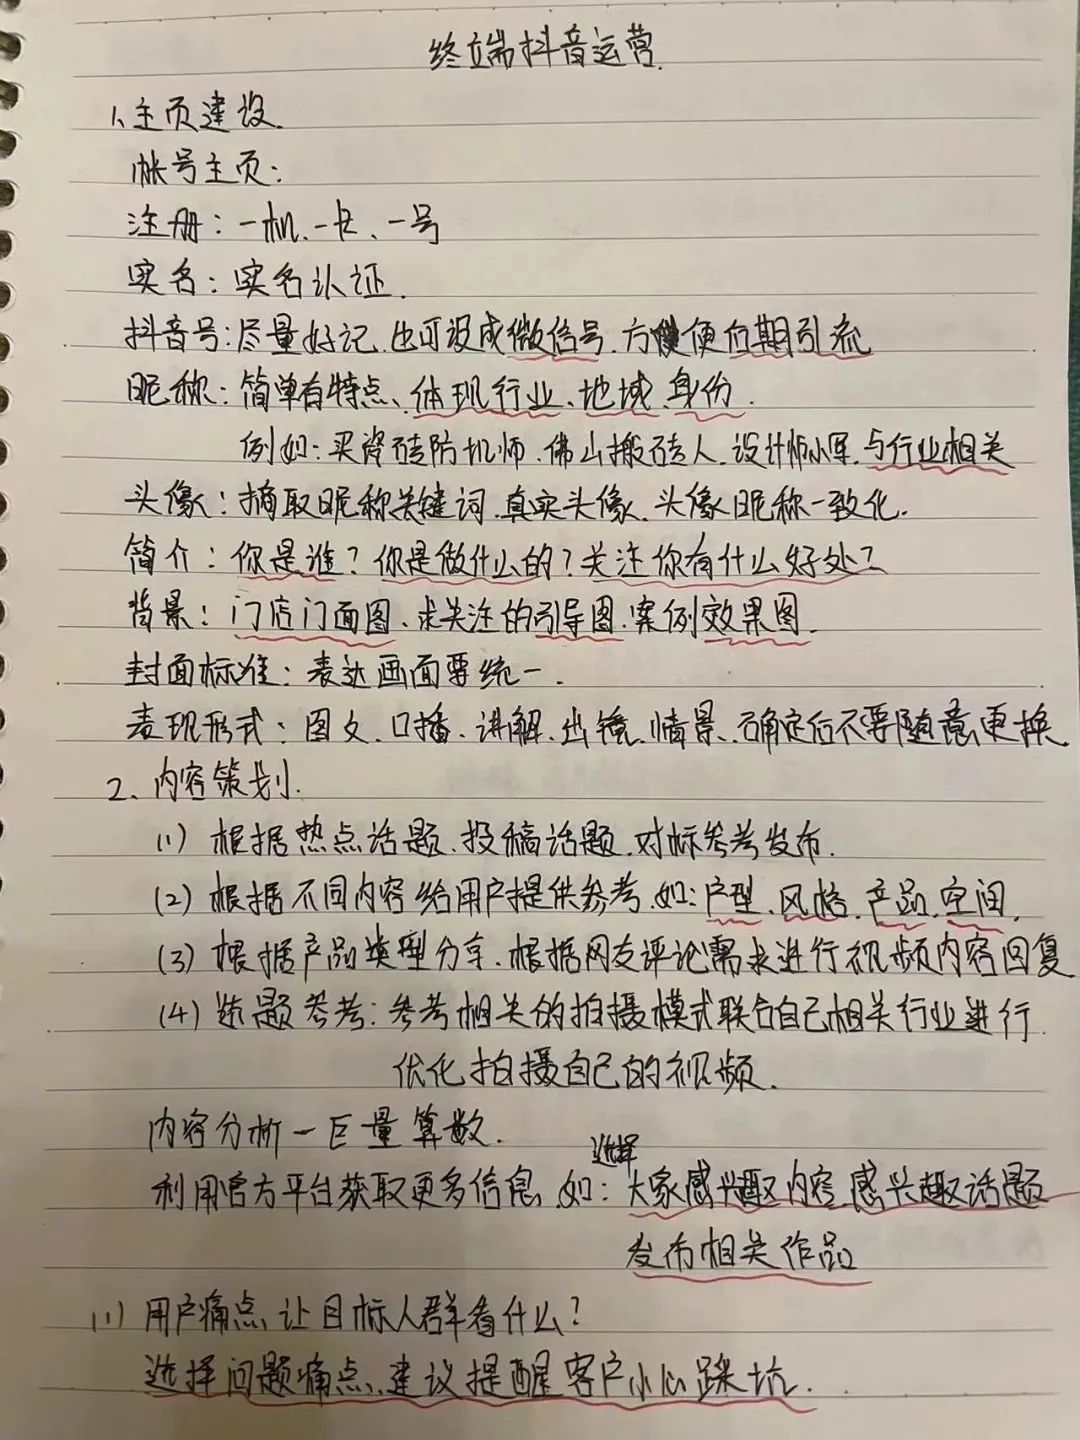 终端抖音运营.
1、主页建设.
帐号主页:
注册: 一机、一卡、一号
实名: 实名认证.
抖音号:尽量好记、也可设成微信号、方便后期引流
昵称: 简单有特点、体现行业、地域、身份.
例如: 买瓷砖防坑师、佛山搬砖人、设计师小军、与行业相关
头像: 摘取昵称关键词、真实头像、头像昵称一致化.
简介: 你是谁? 你是做什么的? 关注你有什么好处?
背景: 门店门面图、求关注的引导图、案例效果图.
封面标准: 表达画面要统一.
表现形式: 图文、口播、讲解、出镜、情景、确定后不要随意更换
2、内容策划.
(1) 根据热点话题、投稿话题、对标参考发布.
(2) 根据不同内容给用户提供参考、如: 户型、风格、产品、空间.
(3) 根据产品类型分享、根据网友评论需求进行视频内容回复
(4) 选题参考: 参考相关的拍摄模式联合自己相关行业进行
优化拍摄自己的视频.
内容分析一巨量算数.
利用官方平台获取更多信息、如: 选择大家感兴趣内容、感兴趣话题
发布相关作品
(1) 用户痛点、让目标人群看什么?
选择问题痛点、建议提醒客户小心踩坑.